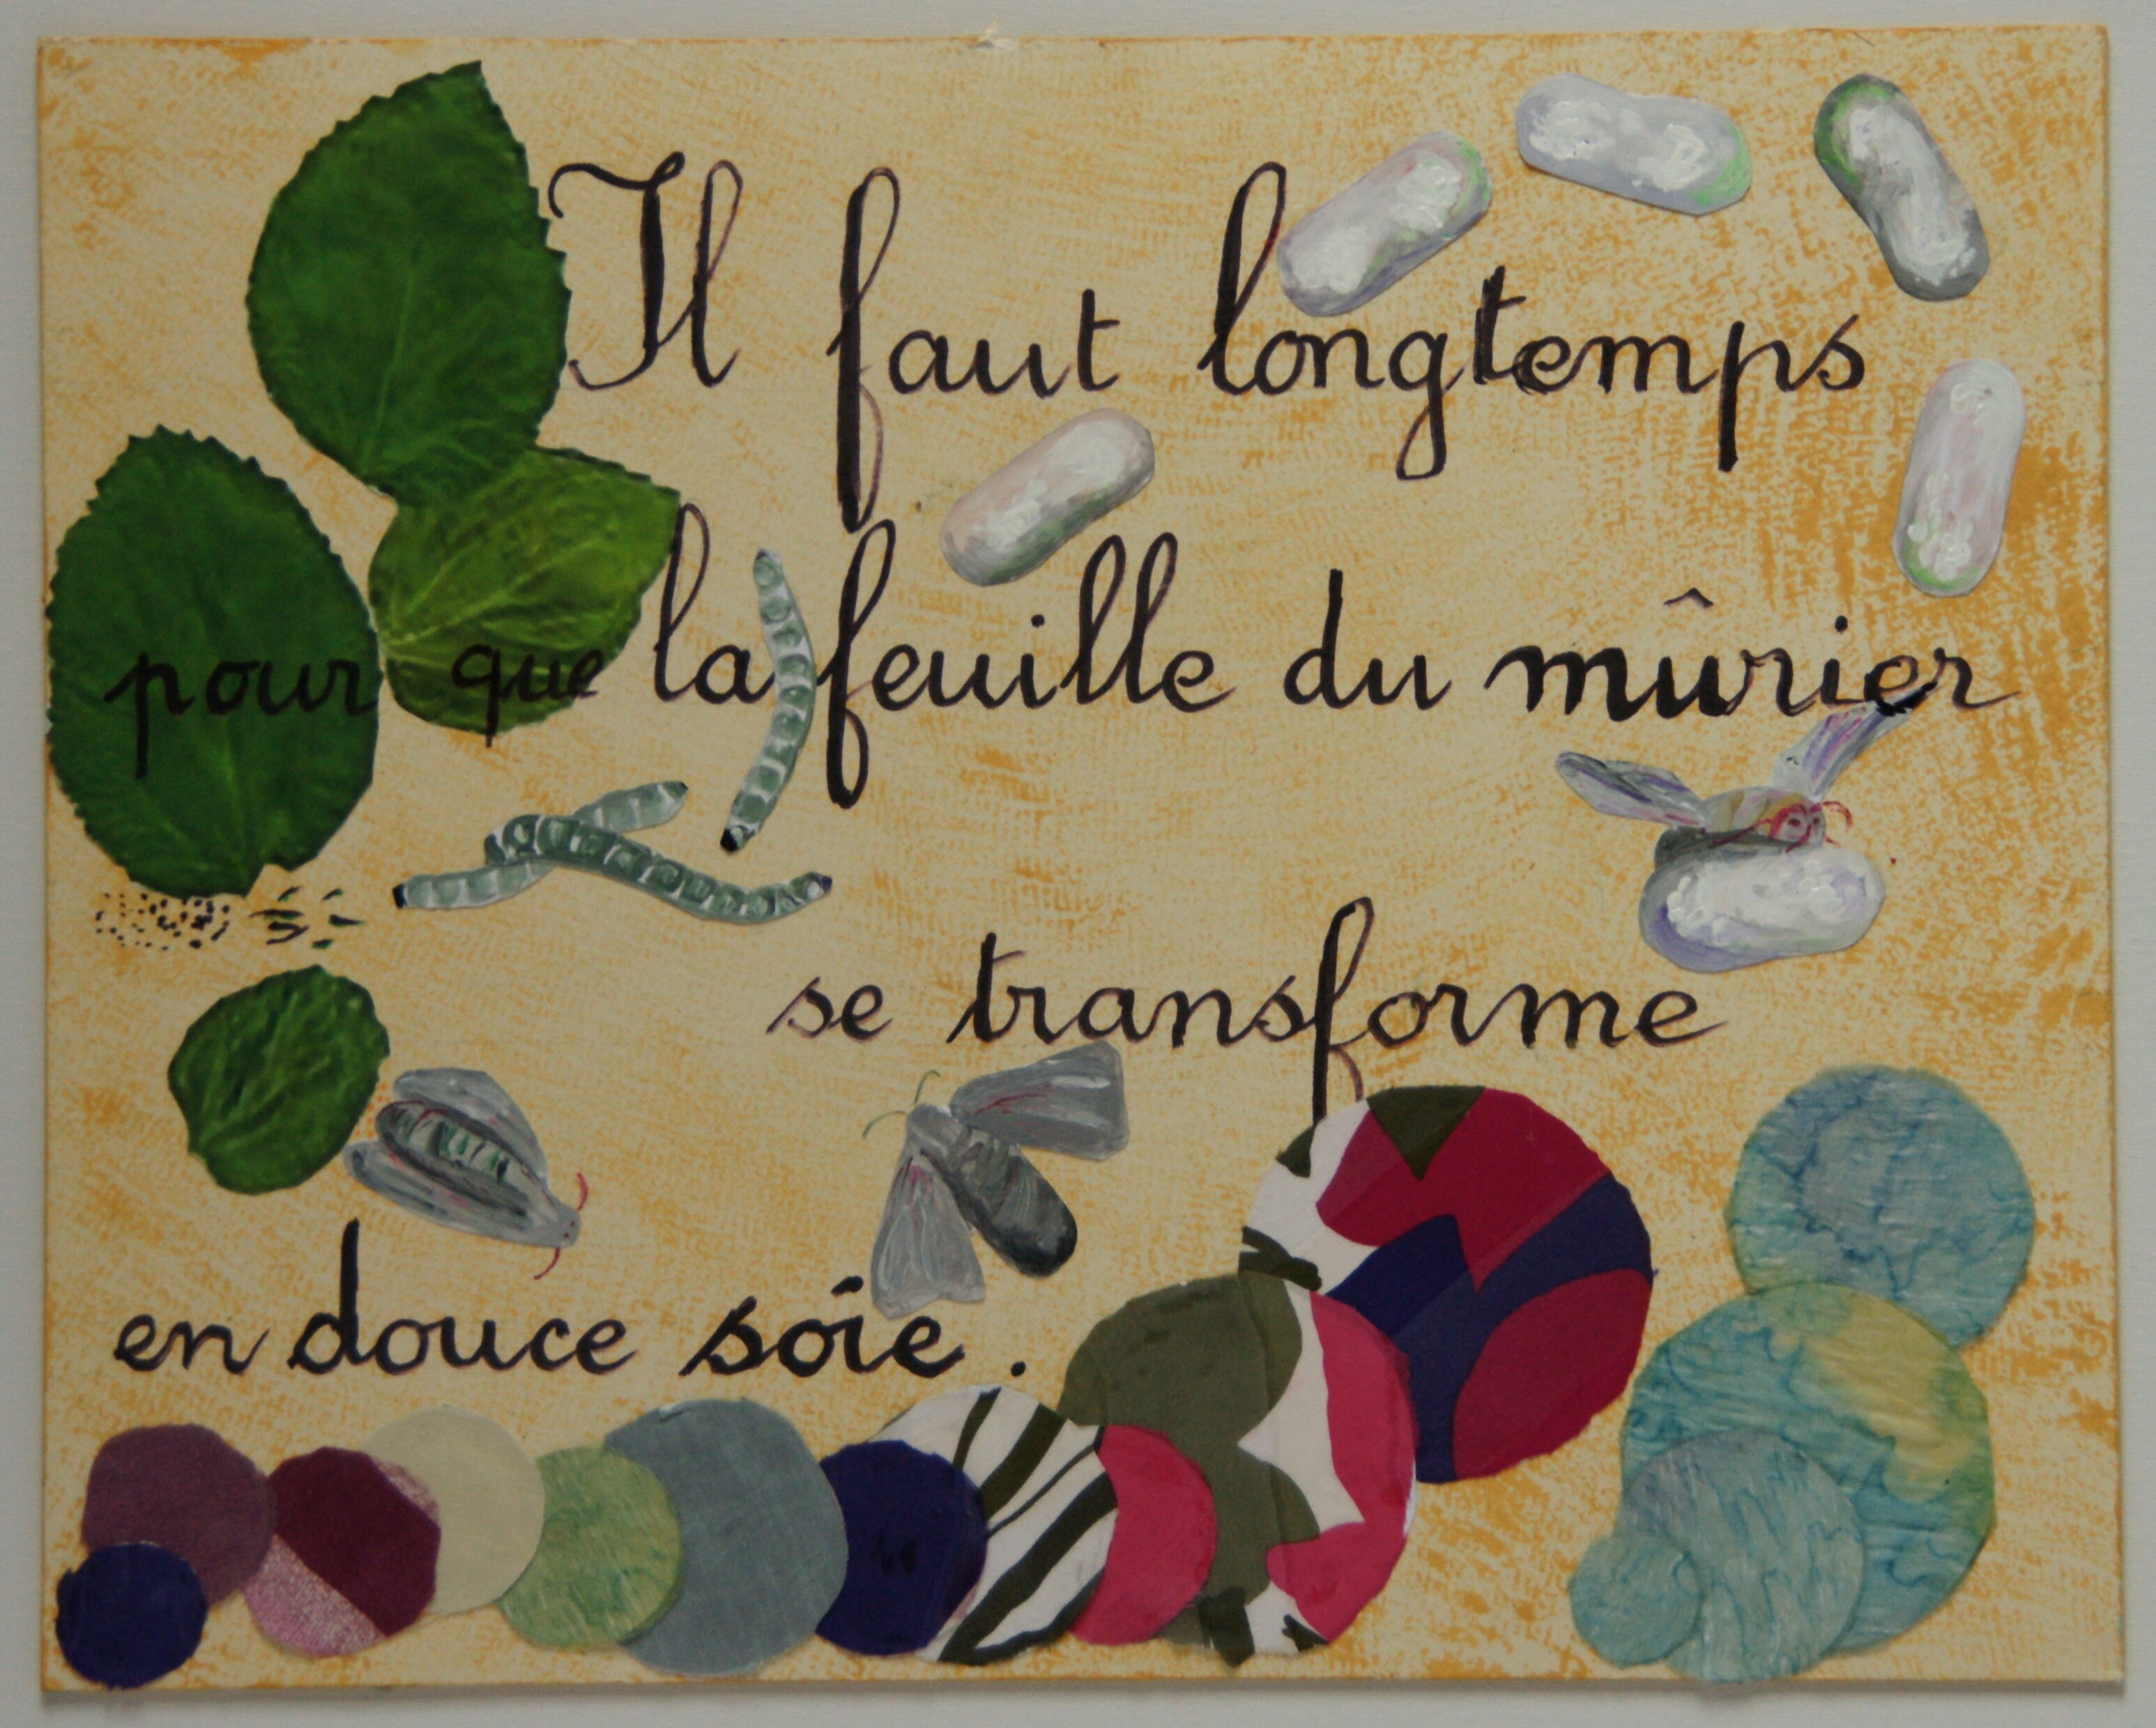 Il faut longtemps
pour que la feuille du mûrier
se transforme
en douce soie .